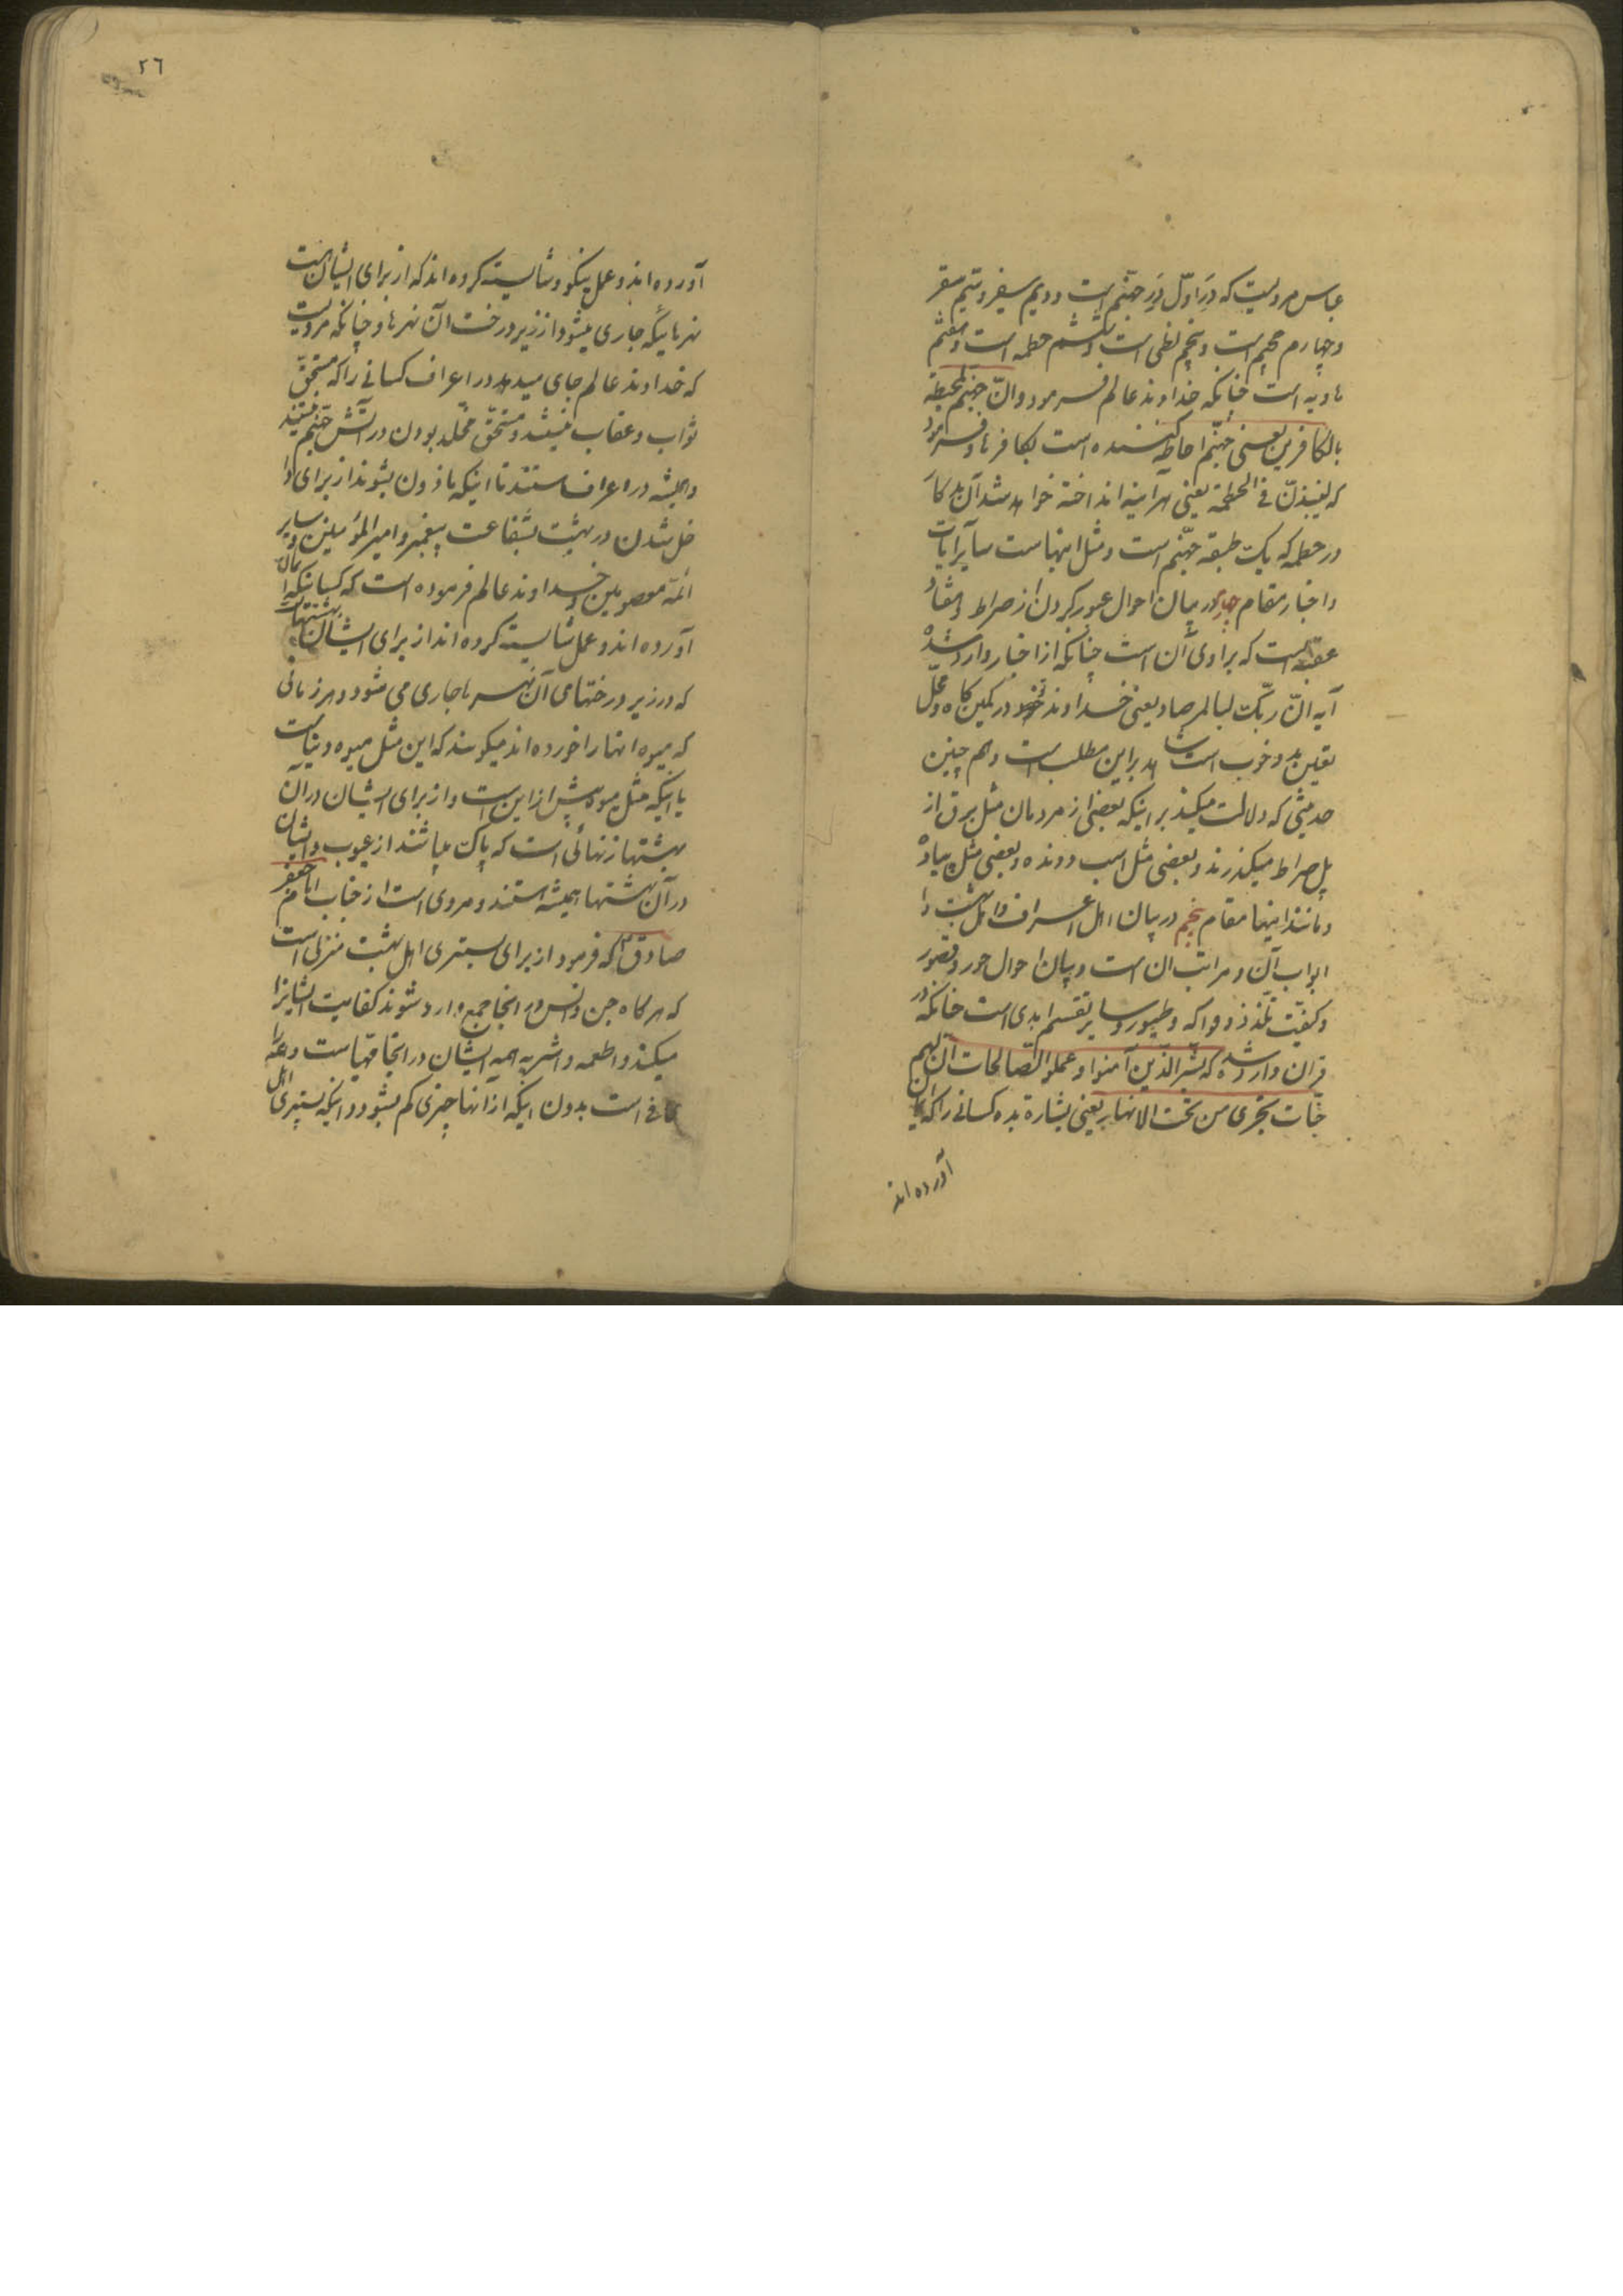 عباس مرویست که دَرِ اوّل دَرِ جهنّم است و دویم سعیر و سیّم سقر
و چهارم جحیم است و پنجم لظی است و ششم حطمه است و هفتم
هاویه است چنانکه خداوند عالم فرمود و انّ جهنّم لمحیطة
بالکافرین یعنی جهنّم احاطه کننده است بکافرها و فرمود
که لینبذنّ فی الحطمة یعنی هرآینه انداخته خواهد شد آن بدکار
در حطمه که یک طبقه جهنّم است و مثل اینهاست سایر آیات
و اخبار مقام چهارم در بیان احوال عبور کردن از صراط و هفتاد
عقبه است که بر روی آن است چنانکه از اخبار وارد شده
آیه انّ ربّک لبالمرصاد یعنی خداوند خود در کمین کاه و محلّ
تعین بد و خوب است شاهد بر این مطلب است و هم چنین
حدیثی که دلالت میکند بر اینکه بعضی از مردمان مثل برق از
پل صراط میکذرند و بعضی مثل اسب دونده و بعضی مثل پیاده
و مانند اینها مقام پنجم در بیان اهل اعراف و اهل بهشت و ا
ابواب آن و مراتب ان است و بیان احوال حور و قصور
و کیفیّت تلذّذ و فواکه و طیور و سایر نقسم ابدی است چنانکه در
قران وارد شده که بشّر الّذین آمنوا و عملوا الصّالحات انّ لهم
جنّات تجری من تحت الانهار یعنی بشارة بده کسانی را که ایمان
آورده اند
٢٦
آورده اند و عمل نیکو و شایسته کرده اند که از برای ایشان است
نهرهائیکه جاری میشود از زیر درخت آن نهرها و چنانکه مرویست
که خداوند عالم جای میدهد در اعراف کسانی را که مستحقّ
ثواب و عقاب نیستند و مستحقّ مخلّد بودن در آتش جهنّم نیستند
و همیشه در اعراف هستند تا اینکه ماذون بشوند از برای دا
خل شدن در بهشت بشفاعت پیغمبر و امیر المؤمنین و سایر
ائمّه معصومین و خداوند عالم فرموده است که کسانیکه ایمان
آورده اند و عمل شایسته کرده اند از برای ایشان بهشتهاست
که در زیر درختهای آن نهرها جاری می شود و هر زمانی
که میوه انها را خورده اند میکویند که این مثل میوه دنیاست
یا اینکه مثل میوه پیش از این است و از برای ایشان در آن
بهشتها زنهائی است که پاک میباشند از عیوب و ایشان
در آن بهشتها همیشه هستند و مروی است از جناب امام جعفر
صادق که فرمود از برای پستتری اهل بهشت منزلی است
که هر کاه جن و انس در انجا جمیع وارد شوند کفایت ایشانرا
میکند و اطعمه و اشربه همه ایشان در انجا مهیاست و همه را
کافی است بدون اینکه از آنها چیزی کم بشود و اینکه پستری اهل